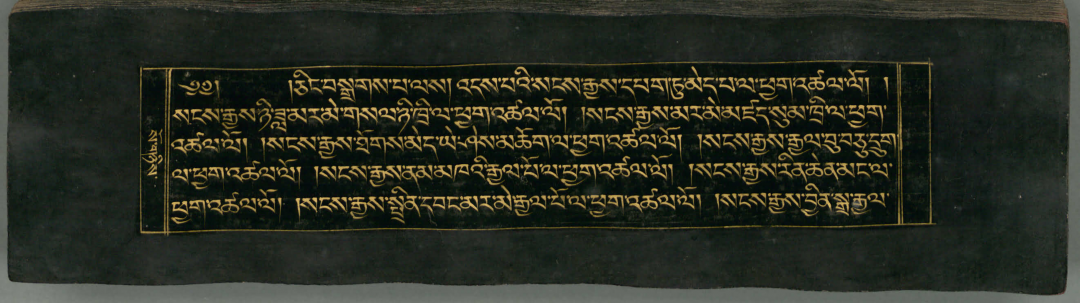 ༄༅། །ཅིང་བསྒྲགས་པ་ལས། འདས་པའི་སངས་རྒྱས་དཔག་ཏུ་མེད་པ་ལ་ཕྱག་འཚལ་ལོ། །
སངས་རྒྱས་ཉི་ཟླ་མར་མེ་གསལ་ཉི་ཁྲི་ལ་ཕྱག་འཚལ་ལོ། །སངས་རྒྱས་མར་མེ་མཛད་སུམ་ཁྲི་ལ་ཕྱག་
འཚལ་ལོ། །སངས་རྒྱས་ཐོགས་མེད་ཡེ་ཤེས་མཆོག་ལ་ཕྱག་འཚལ་ལོ། །སངས་རྒྱས་རྒྱལ་བུ་བཅུ་དྲུག་
ལ་ཕྱག་འཚལ་ལོ། །སངས་རྒྱས་ནམ་མཁའི་རྒྱལ་པོ་ལ་ཕྱག་འཚལ་ལོ། །སངས་རྒྱས་རིན་ཆེན་མངལ་
ཕྱག་འཚལ་ལོ། །སངས་རྒྱས་སྤྲིན་དབང་མར་མེ་རྒྱལ་པོ་ལ་ཕྱག་འཚལ་ལོ། །སངས་རྒྱས་བྱིན་སྒྲ་རྒྱལ་